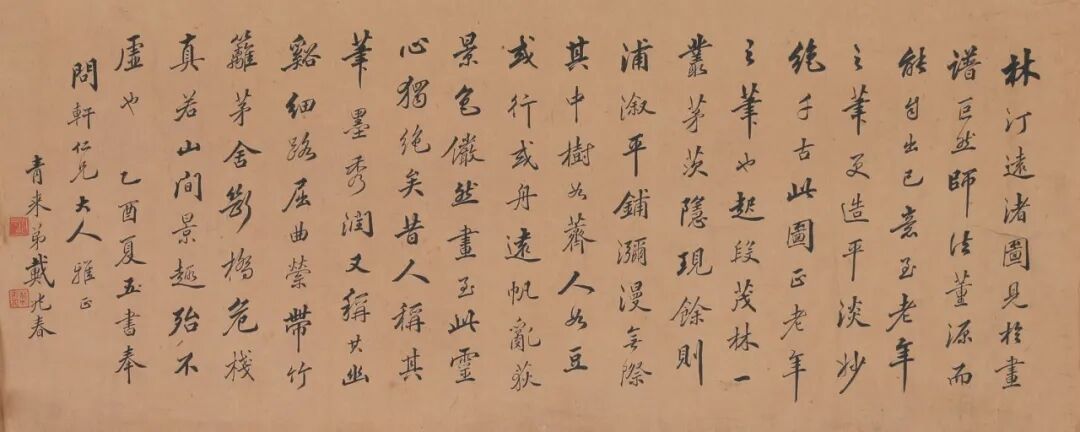 林汀遠渚圖見於畫
譜巨然師法董源而
能自出己意至老年
之筆更造平淡妙
絶千古此圖正老年
之筆也起段茂林一
叢茅茨隱現餘則
浦溆平鋪瀰漫無際
其中樹如薺人如豆
或行或舟遠帆亂荻
景色儼然畫至此靈
心獨絶矣昔人稱其
筆墨秀潤又稱其幽
谿細路屈曲縈帶竹
籬茅舍斷橋危棧
真若山間景趣殆不
虛也 乙酉夏五書奉
問軒仁兄大人 雅正
青来弟戴兆春